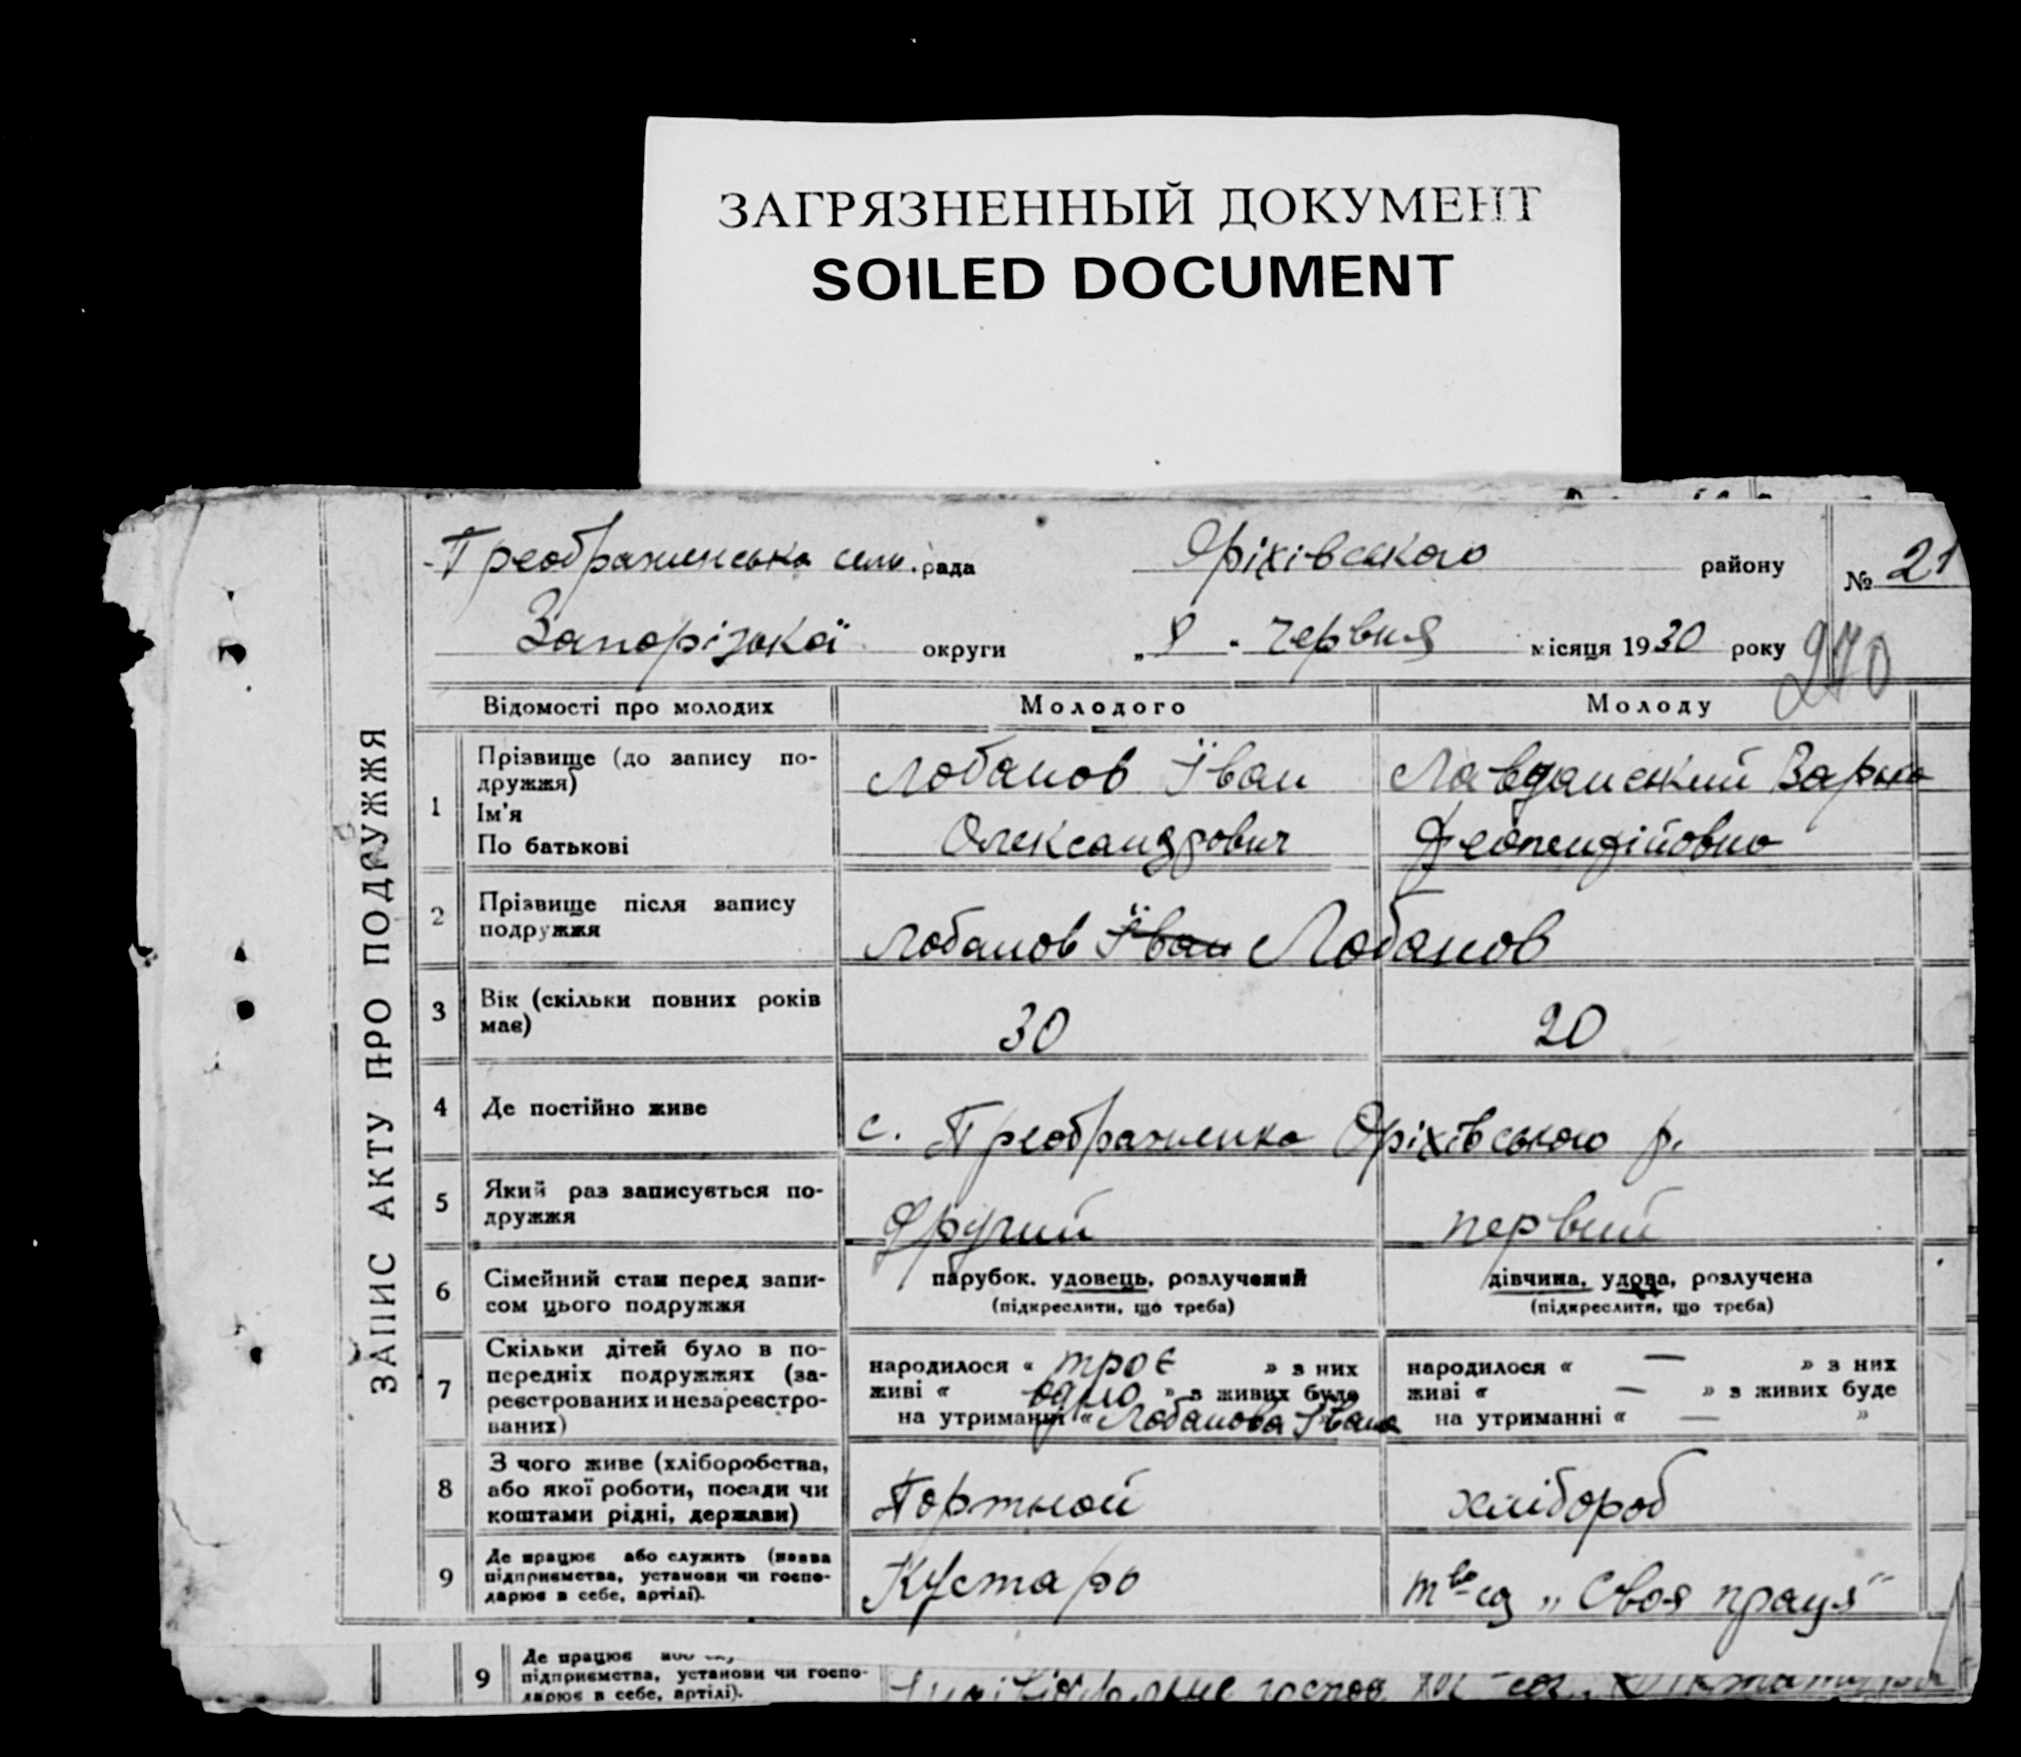 ЗАГРЯЗНЕННЫЙ ДОКУМЕНТ
SOILED DOCUMENT
ЗАПИС АКТУ ПРО ПОДРУЖЖЯ
Преображенська сель. рада Оріхівського району № 21
Запорізької округи „ 8 " червня місяця 1930 року 270
Відомості про молодих Молодого Молоду
1 Прізвище (до запису по-
дружжя)
Ім'я
По батькові
Лобанов Іван
Олександрович
Лавданский Варька
2 Прізвище після запису
подружжя
Лобанов Іван Лобанов
3 Вік (скільки повних років
має)
30 20
4 Де постійно живе с. Преображенка Оріхівського р.
5 Який раз записується по-
дружжя
Другий первий
6 Сімейний стан перед запи-
сом цього подружжя
парубок, удовець, розлучений
(підкреслити, що треба)
дівчина, удова, розлучена
(підкреслити, що треба)
7 Скільки дітей було в по-
передніх подружжях (за-
реєстрованих и незареєстро-
ваних)
народилося « троє » з них
живі « одно » з живих буде
на утриманні « Лобанова Івана
народилося « — » з них
живі « — » з живих буде
на утриманні « — »
8 З чого живе (хліборобства,
або якої роботи, посади чи
коштами рідні, держави)
Портной хлібороб
9 Де працює або служить (назва
підприємства, установи чи госпо-
дарює в себе, артілі).
Кустарь т-во „Своя праця"
9 Де працює
підприємства, установи чи госпо-
дарює в себе, артілі).